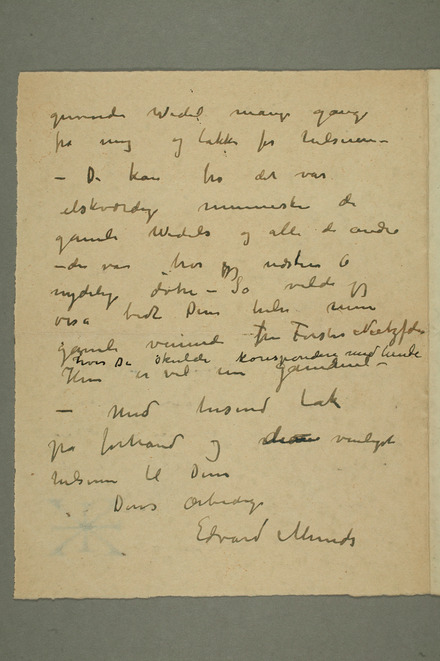 Wedel mange gange
fra mig og takke for hilsenen –
– De kan tro det var
elskværdige mennesker de
gamle Wedels og alle de andre
– der var hos næsten 6
nydelig døtre – Så vilde jeg
også bedt Dem hilse min
gamle veninde Fru Förster Nietzsche
hvis De skulde korrespondere med hende
Hun er vel nu gammel –
– Med tusind tak
på forhånd og venligst
hilsen til Dem
Deres ærbødige
Edvard Munch